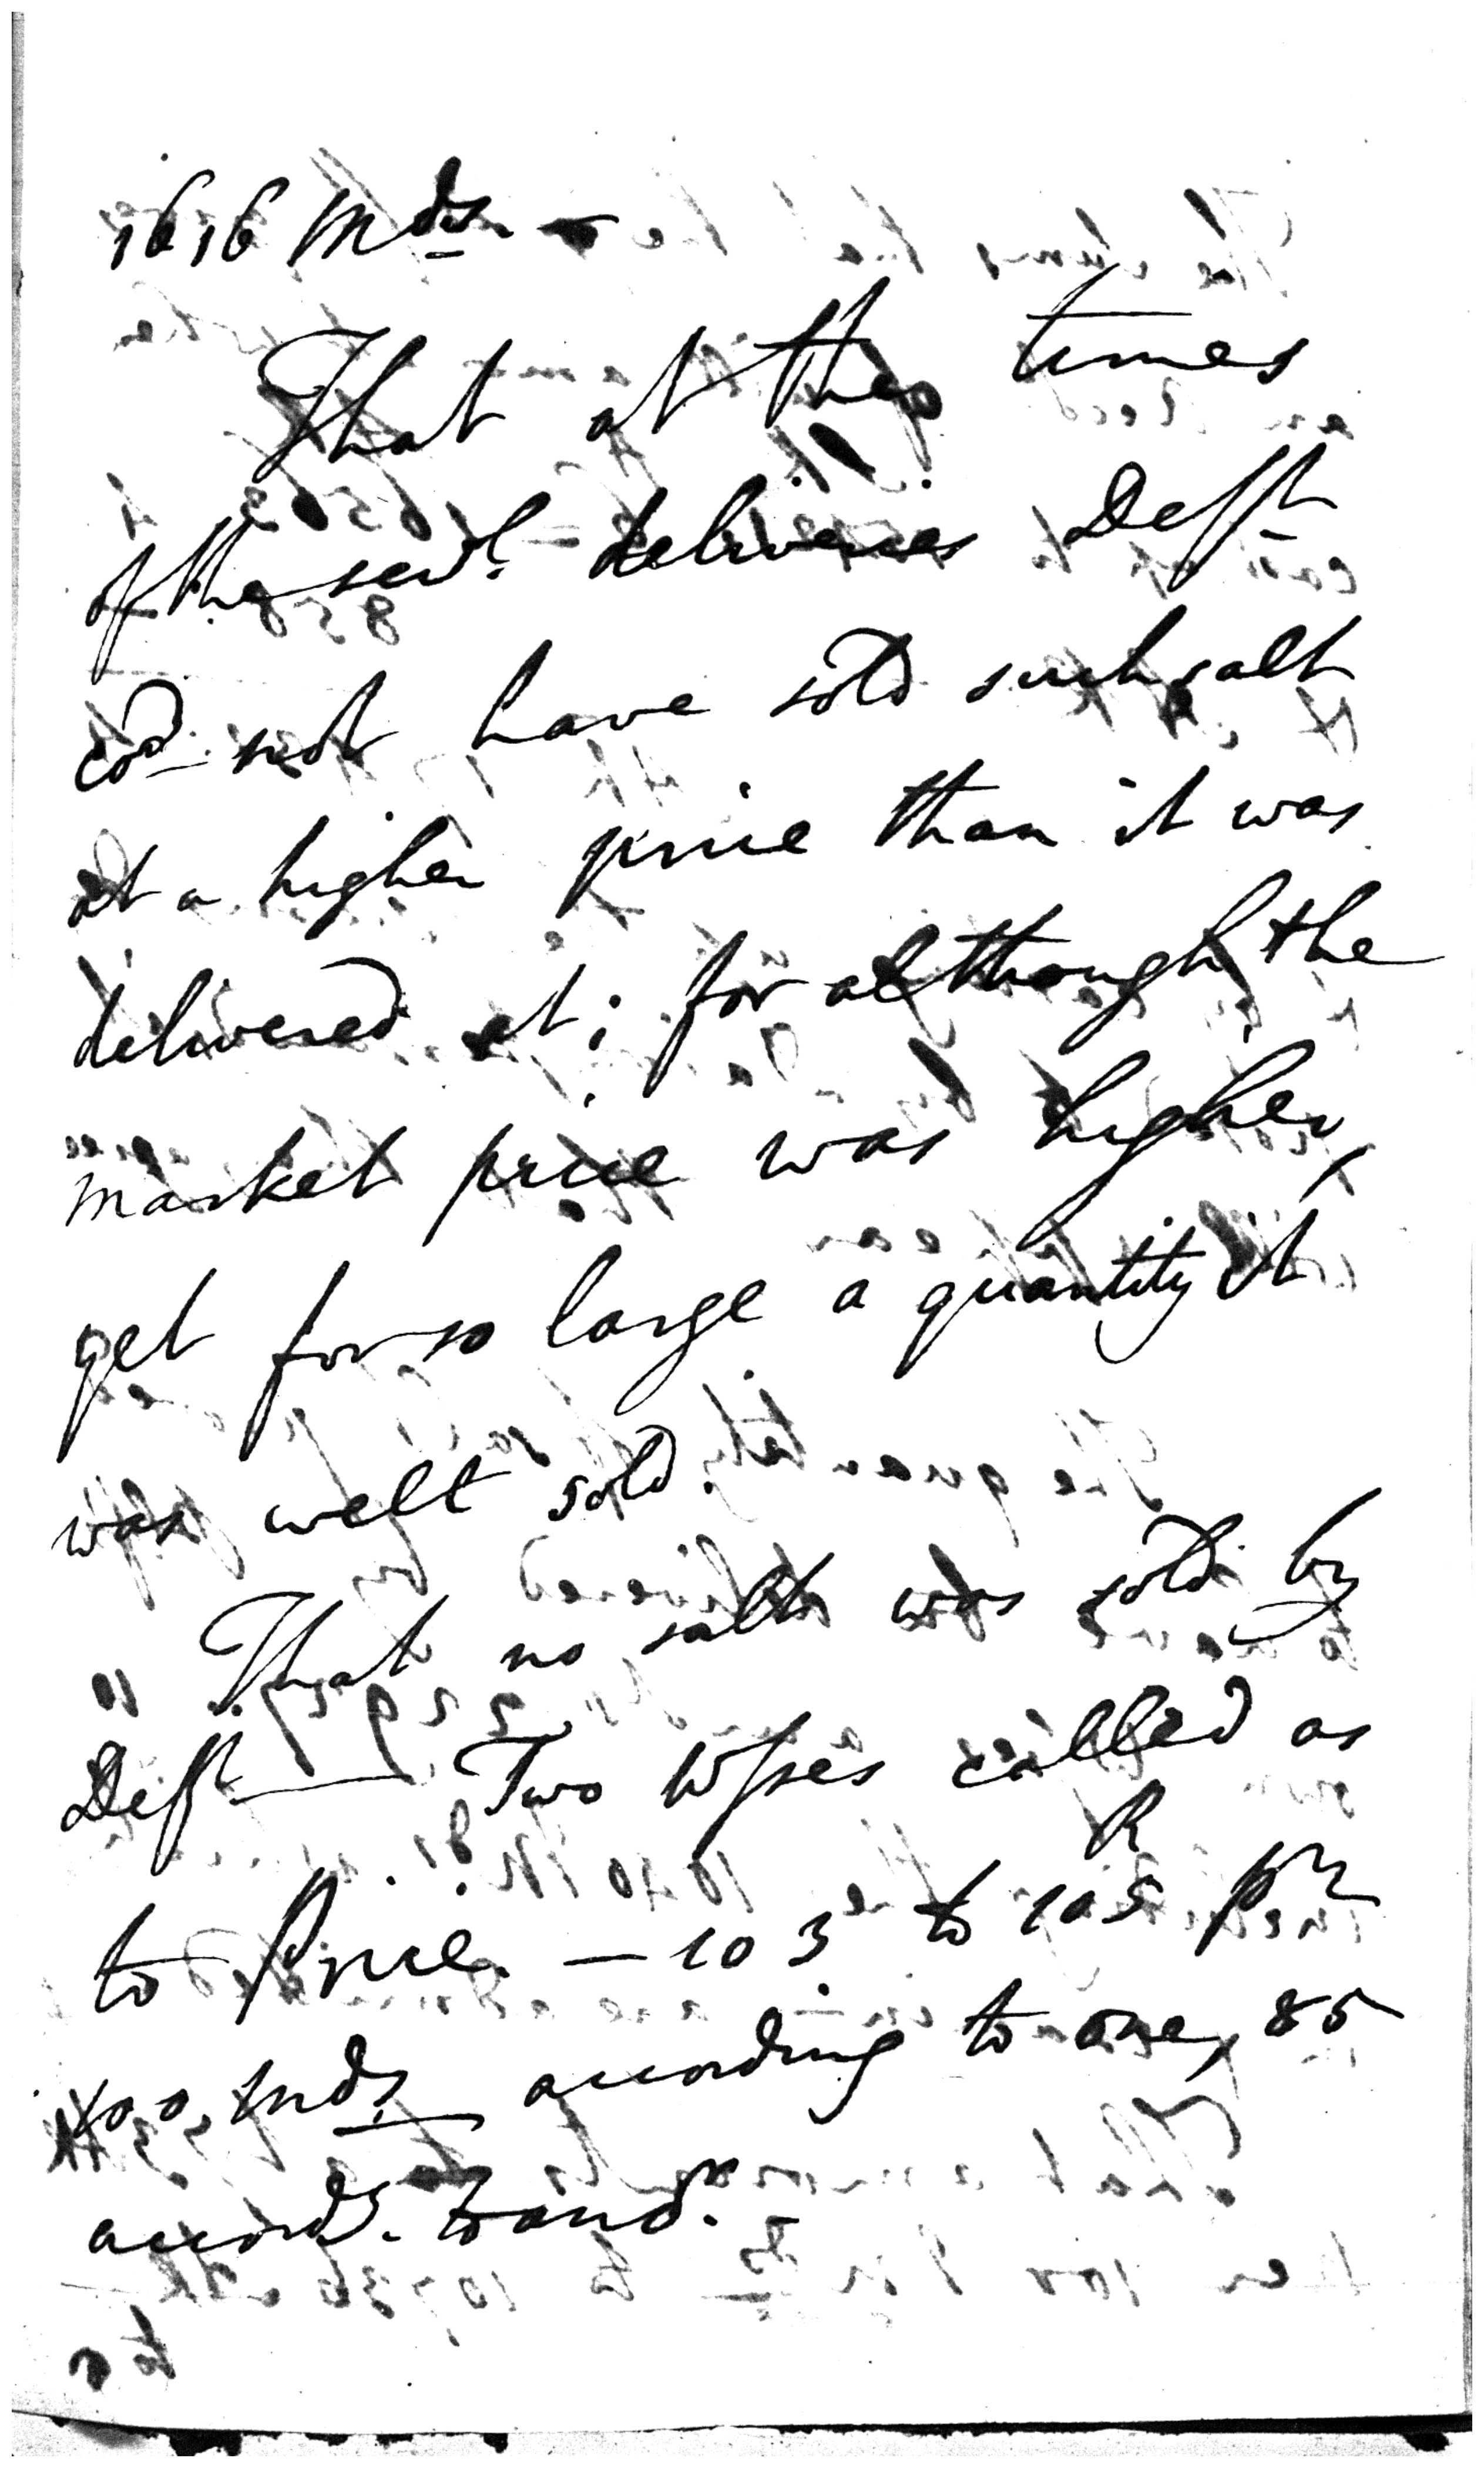 1616 Mds. —
That at the times
of the sevl. deliveries Defft
cod not have sold such salt
at a higher price than it was
delivered at; for although the
market price was higher,
yet for so large a quantity it
was well sold.
That no salt was sold by
Defft — Two Wsses called as
to Price. — 103 to 105 R p
100 Mds according to one, 85
accordg. to anor.